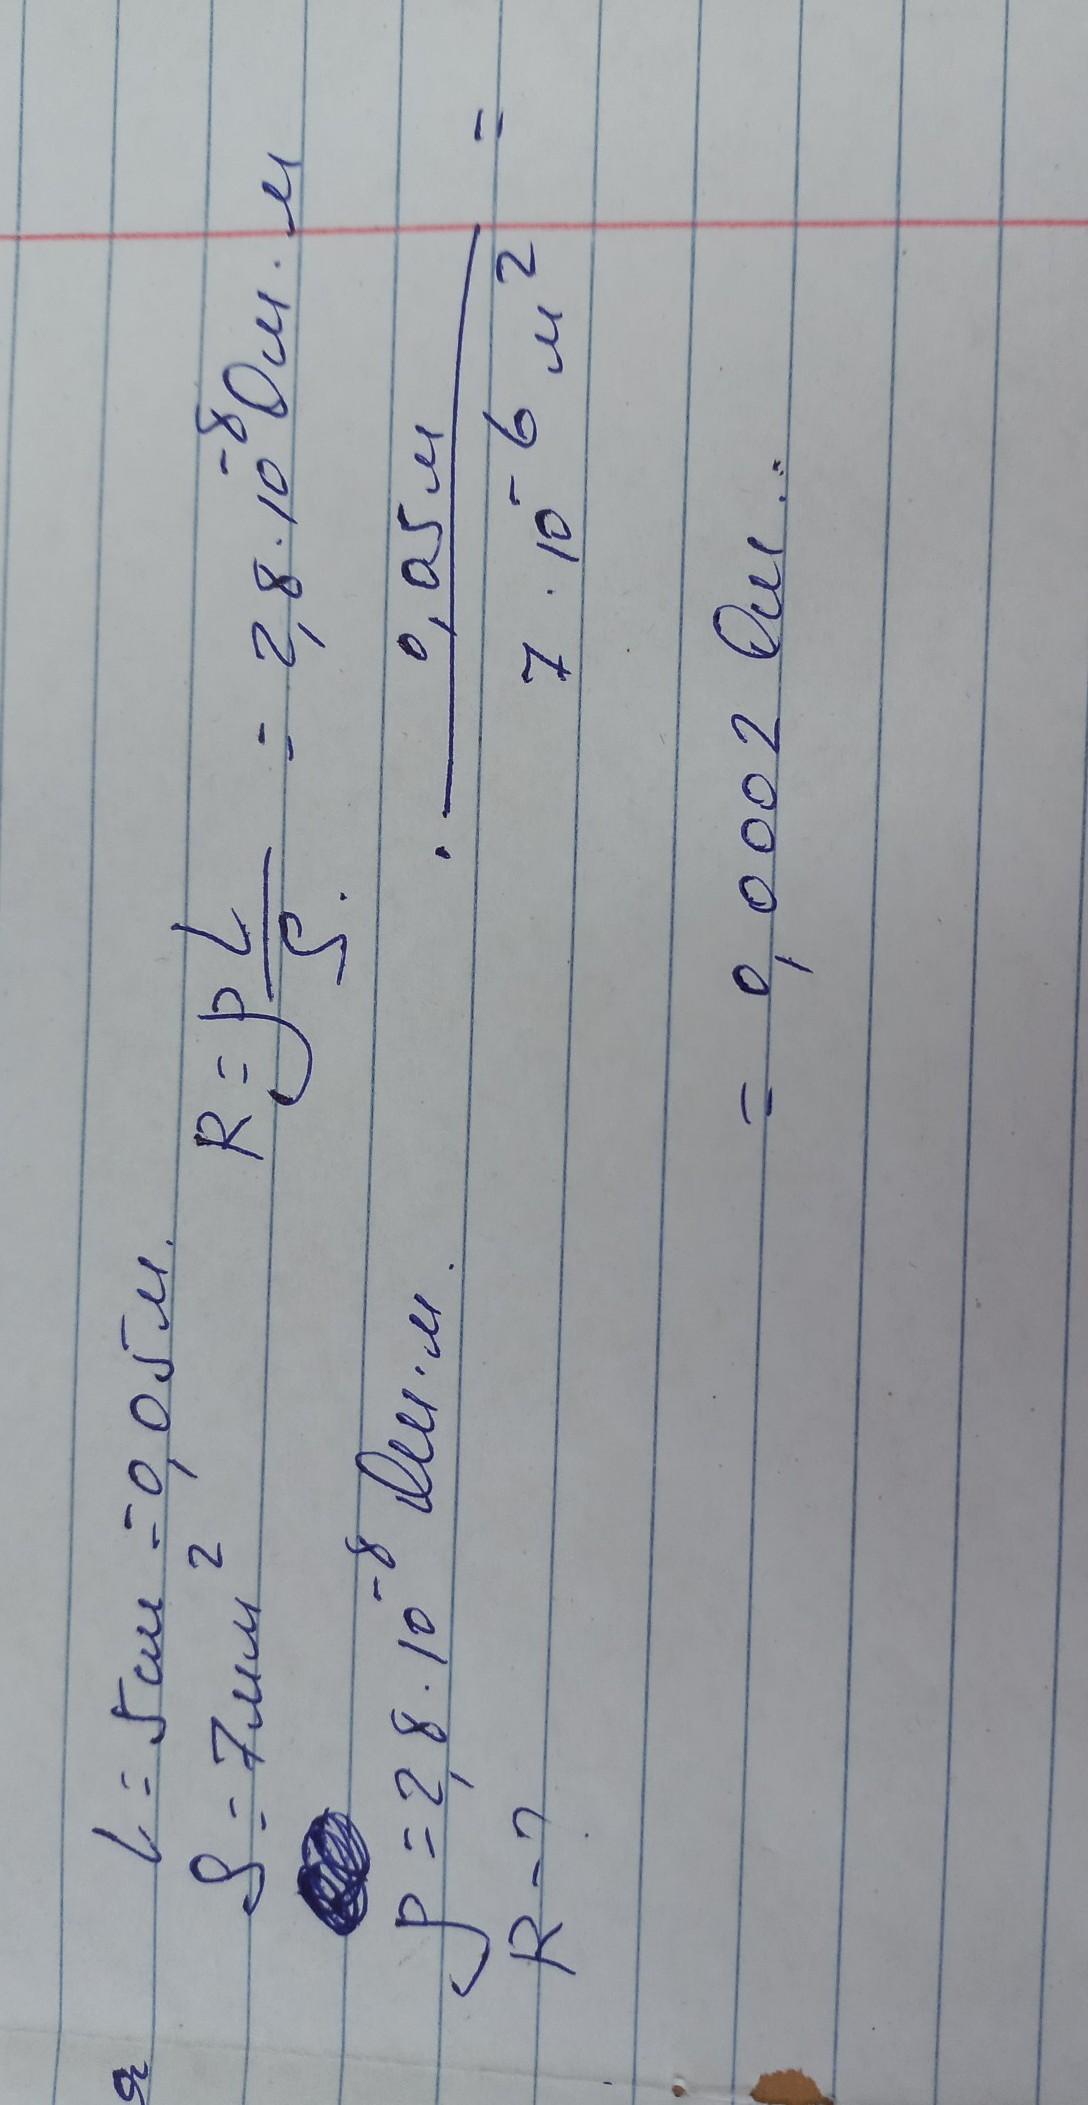 L = 5 см = 0,05 м.
S = 7 мм²
ρ = 2,8 · 10⁻⁸ Ом·м.
R - ?
R = ρ L/S = 2,8 · 10⁻⁸ Ом · м
· 0,05 м / 7 · 10⁻⁶ м² =
= 0,0002 Ом.